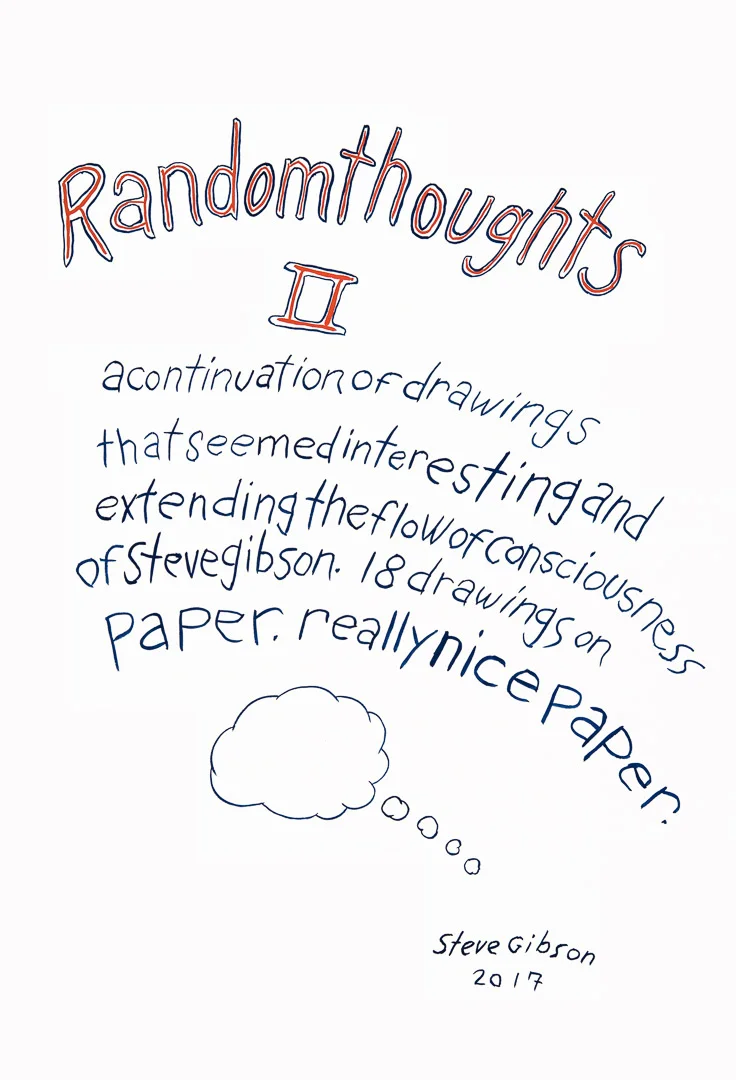 Randomthoughts
II
acontinuationofdrawings
thatseemedinterestingand
extendingtheflowofconsciousness
ofStevegibson. 18drawingson
paper. reallynicepaper.
Steve Gibson
2017